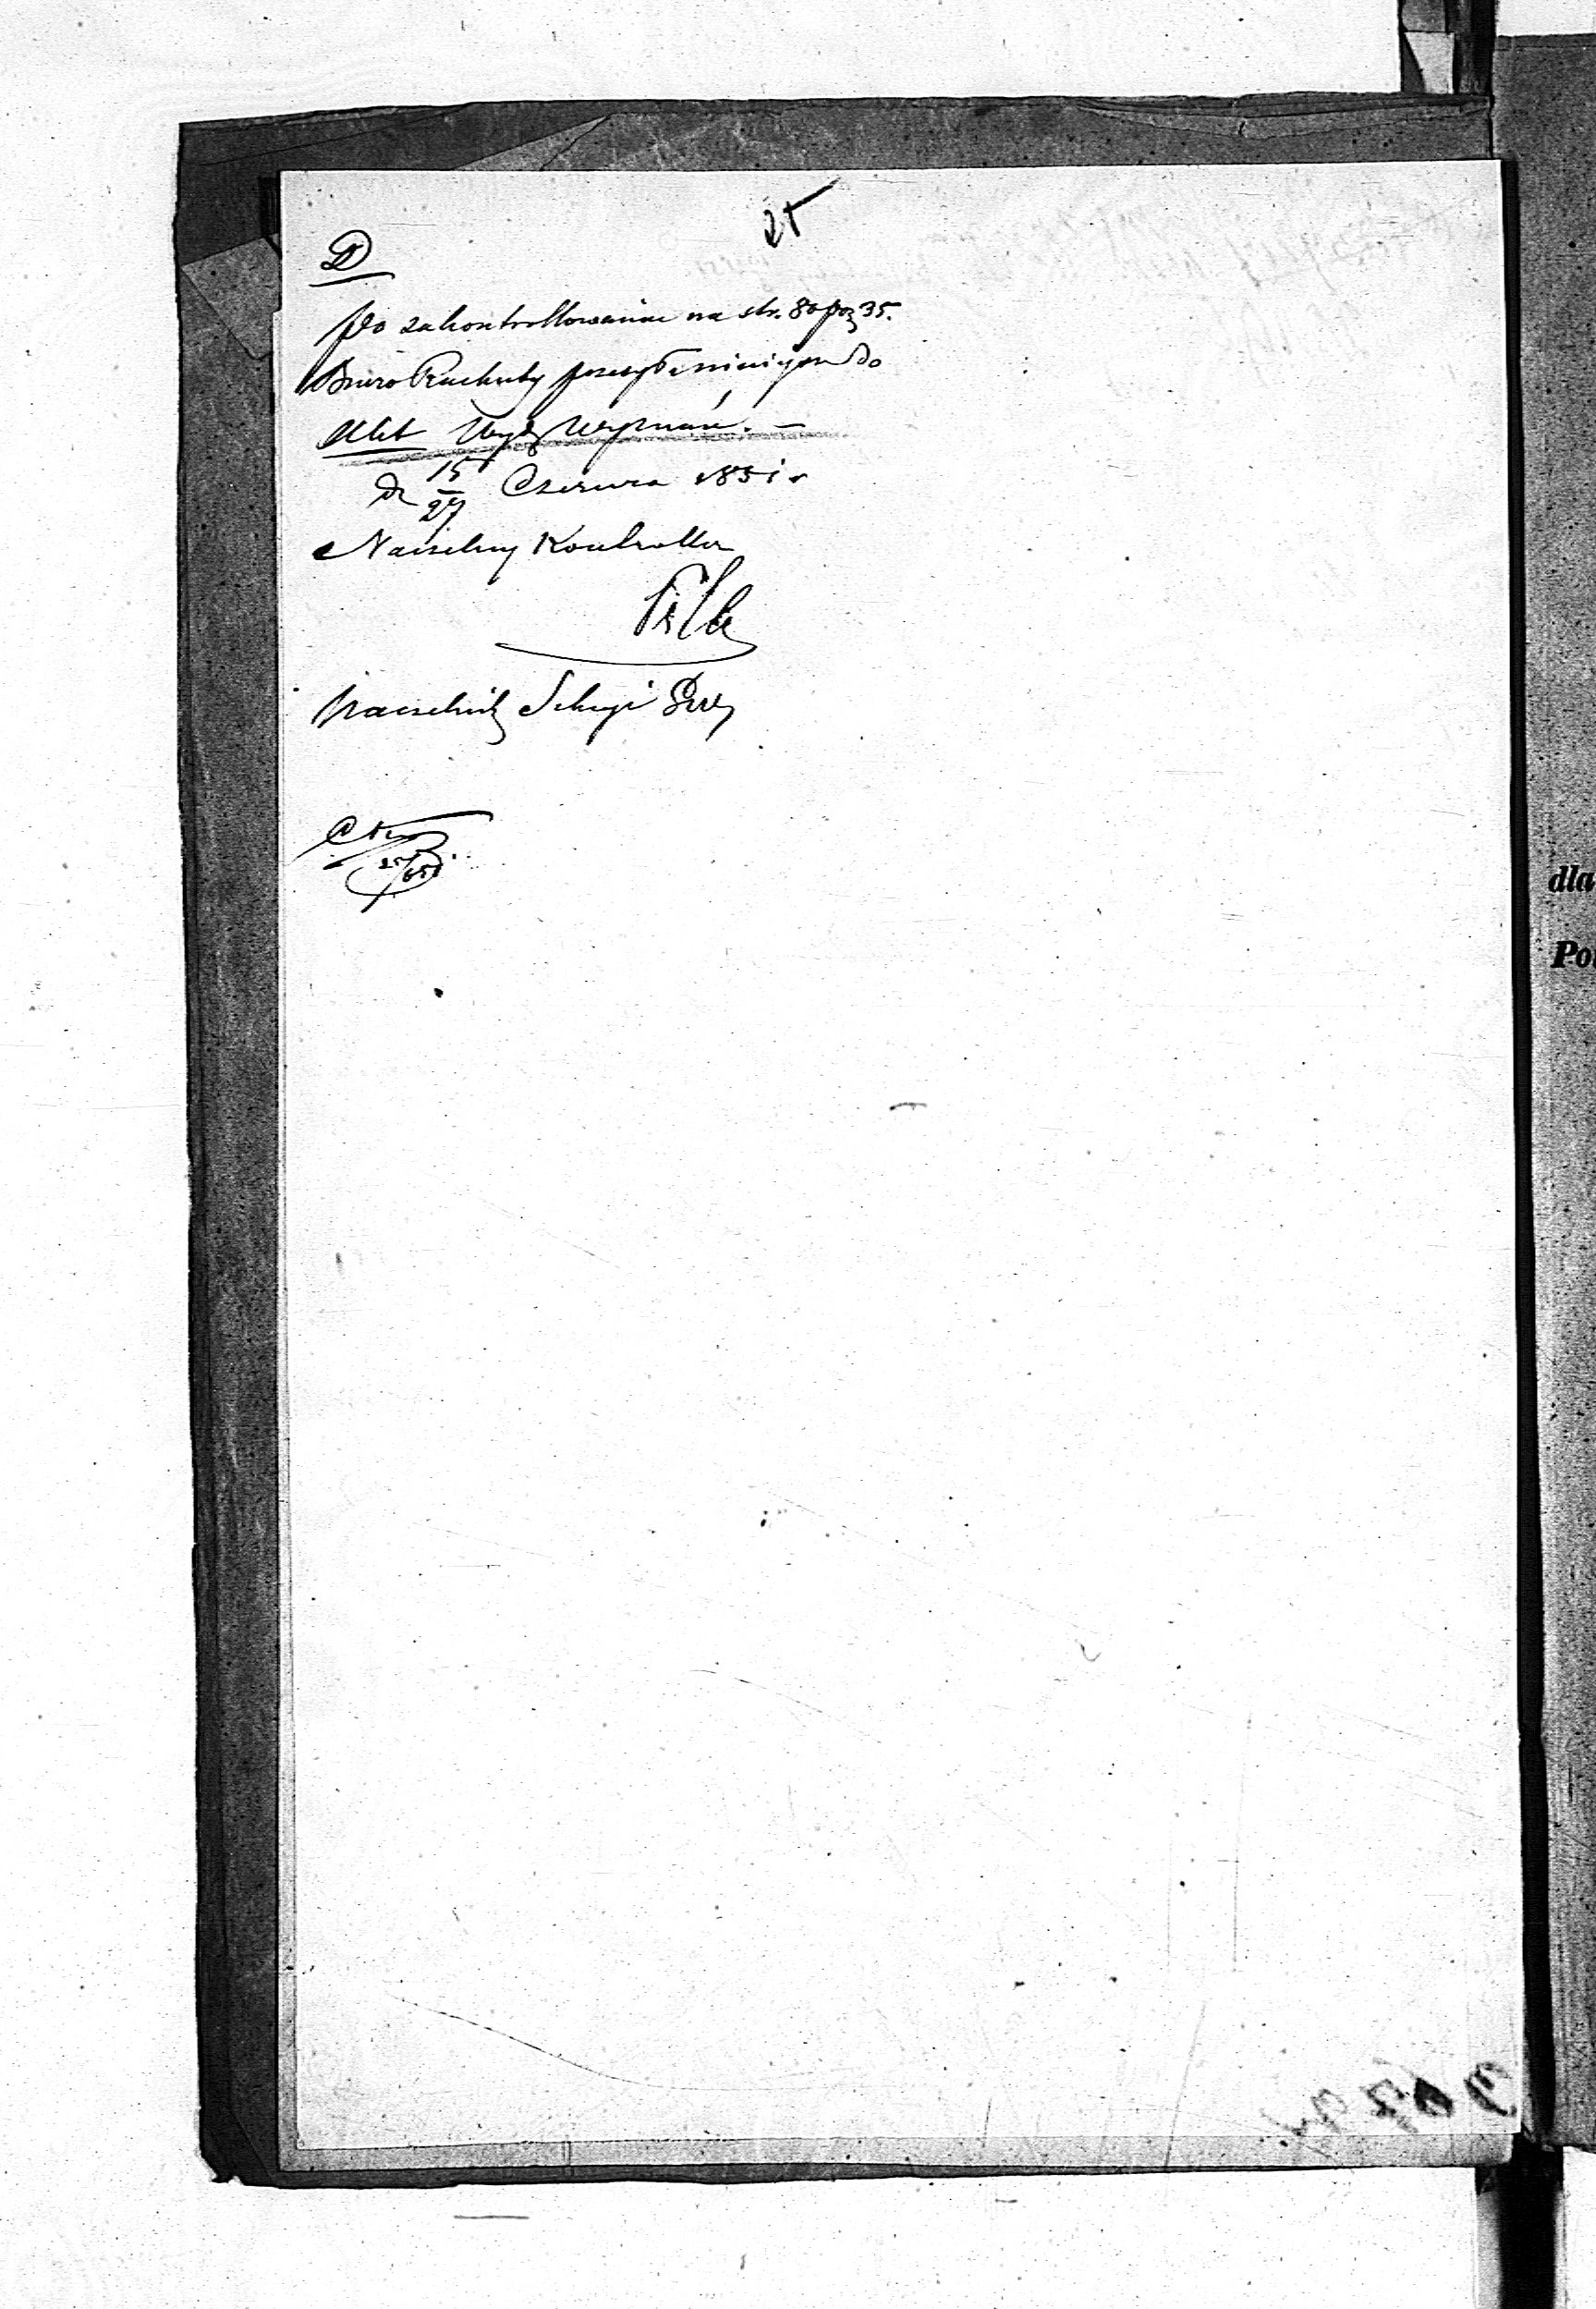 25
D
Po zakontrollowaniu na str. 80 poz 35.
Biuro Rachuby przesyła niniejsze do
Akt Wydz Wyznań. —
d 15/27 Czerwca 1851 r
Naczelny Kontroller
Naczelnik Sekcyi
dla
Po